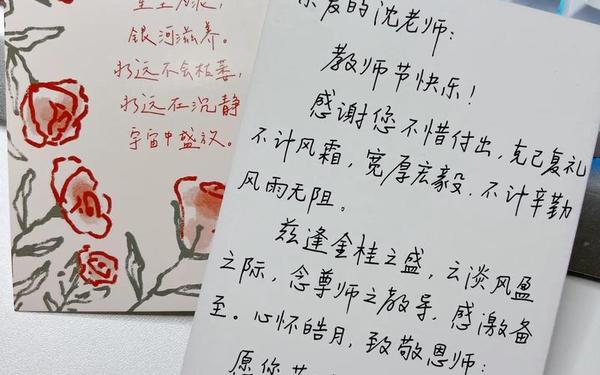 银河滋养。
永远不会枯萎,
永远在沉静
宇宙中盛放。
亲爱的沈老师:
教师节快乐!
感谢您不惜付出,克己复礼
不计风霜,宽厚宏毅.不计辛勤
风雨无阻。
兹逢金桂之盛,云淡风盈
之际,念尊师之教导,感激备
至。心怀皓月,致敬恩师:
愿您